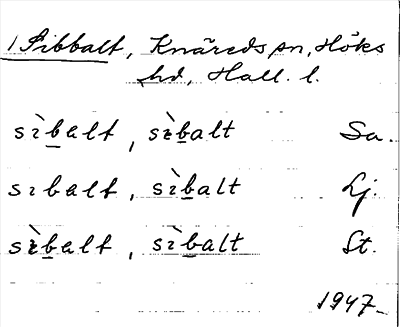 1 Sibbalt, Knäreds sn, Höks
hd, Hall. l.
sìbalt, sìbalt Sa.
sıbalt, sìbalt Lj.
sìbalt, sìbalt St.
1947